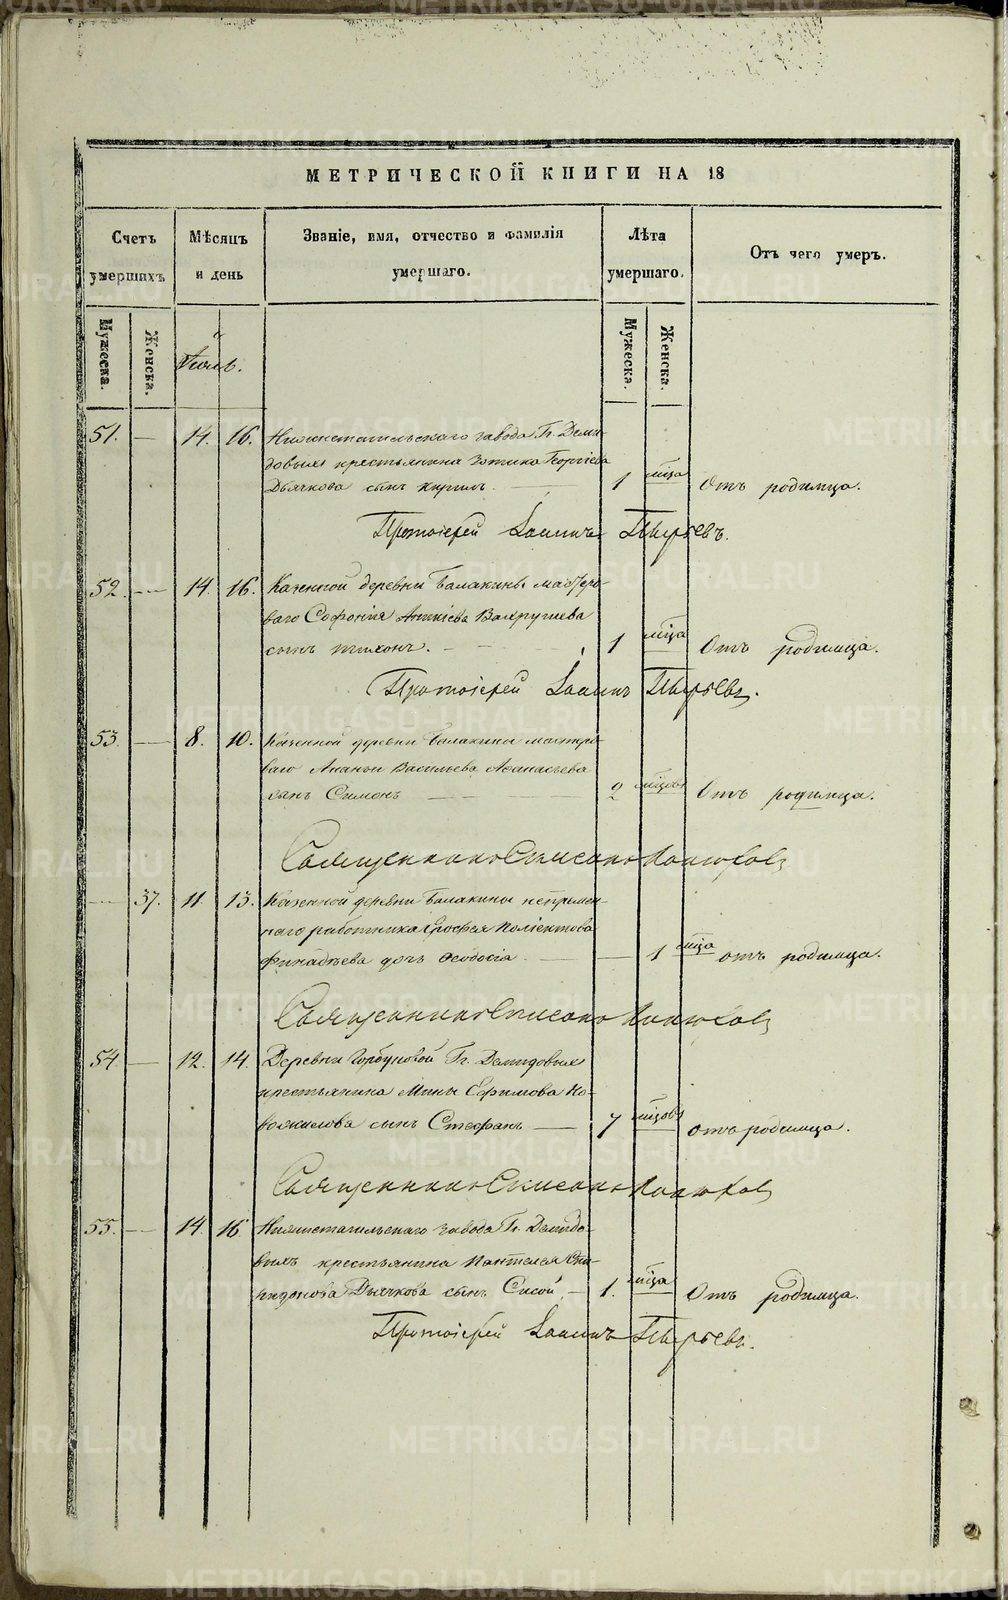 МЕТРИЧЕСКОЙ КНИГИ НА 18
Счетъ умершихъ
Мѣсяцъ и день
Званіе, имя, отчество и фамилія умершаго.
Лѣта умершаго.
Отъ чего умеръ.
Мужеска.
Женска.
Мужеска.
Женска.
51. — 14. 16. Нижнетагильскаго завода Гг. Деми-
довыхъ крестьянина Зотика Георгіева
Дьячкова сынъ Кирилъ. — 1 мца Отъ родимца.
Протоіерей Іоаннъ Пырьевъ.
52. — 14. 16. Казенной деревни Балакины мастеро-
ваго Софонія Вахрушева
сынъ Тихонъ. — 1 мца Отъ родимца.
Протоіерей Іоаннъ Пырьевъ.
53. — 8. 10. Казенной деревни Балакины мастеро-
ваго Ананьи Васильева Аѳанасьева
сынъ Симонъ — 2 мцовъ Отъ родимца.
Священникъ
— 37. 11 13. Казенной деревни Балакины непремен-
наго работника Ерофея
дочь Ѳеодосія — 1 мца отъ родимца.
Священникъ
54. — 12. 14. Деревни Горбуновой Гг. Демидовыхъ
крестьянина Мины Ефимова Но-
сынъ Стефанъ — 7 мцовъ отъ родимца.
Священникъ
55. — 14. 16 Нижнетагильскаго завода Гг. Демидо-
выхъ крестьянина Пантелея Спи-
ридонова Дьячкова сынъ Сисой. — 1. мца Отъ родимца.
Протоіерей Іоаннъ Пырьевъ.
METRIKI.GASO-URAL.RU